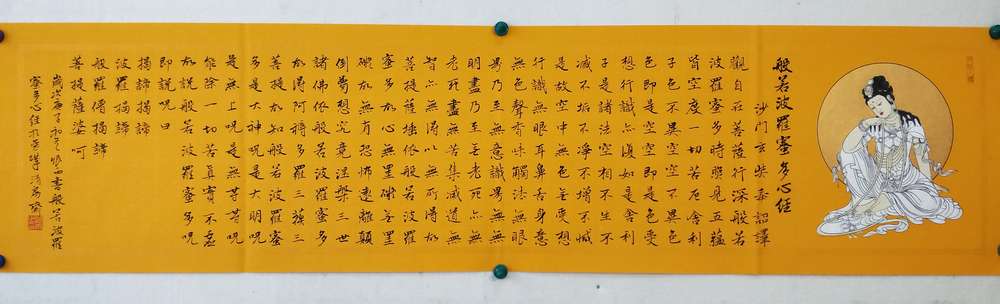 般若波羅蜜多心經
沙門玄奘奉詔譯
觀自在菩薩行深般若
波羅蜜多時照見五蘊
皆空度一切苦厄舍利
子色不異空空不異色
色即是空空即是色受
想行識亦復如是舍利
子是諸法空相不生不
滅不垢不淨不增不減
是故空中無色無受想
行識無眼耳鼻舌身意
無色聲香味觸法無眼
界乃至無意識界無無
明盡乃至無老死亦無
老死盡無苦集滅道無
智亦無得以無所得故
菩提薩埵依般若波羅
蜜多故心無罣礙無罣
礙故無有恐怖遠離顛
倒夢想究竟涅槃三世
諸佛依般若波羅蜜多
故得阿耨多羅三藐三
菩提故知般若波羅蜜
多是大神呪是大明呪
是無上呪是無等等呪
能除一切苦真實不虛
故說般若波羅蜜多呪
即說呪曰
揭諦揭諦
波羅揭諦
般羅僧揭諦
菩提薩婆呵
歲次庚子書般若波羅
蜜多心經於